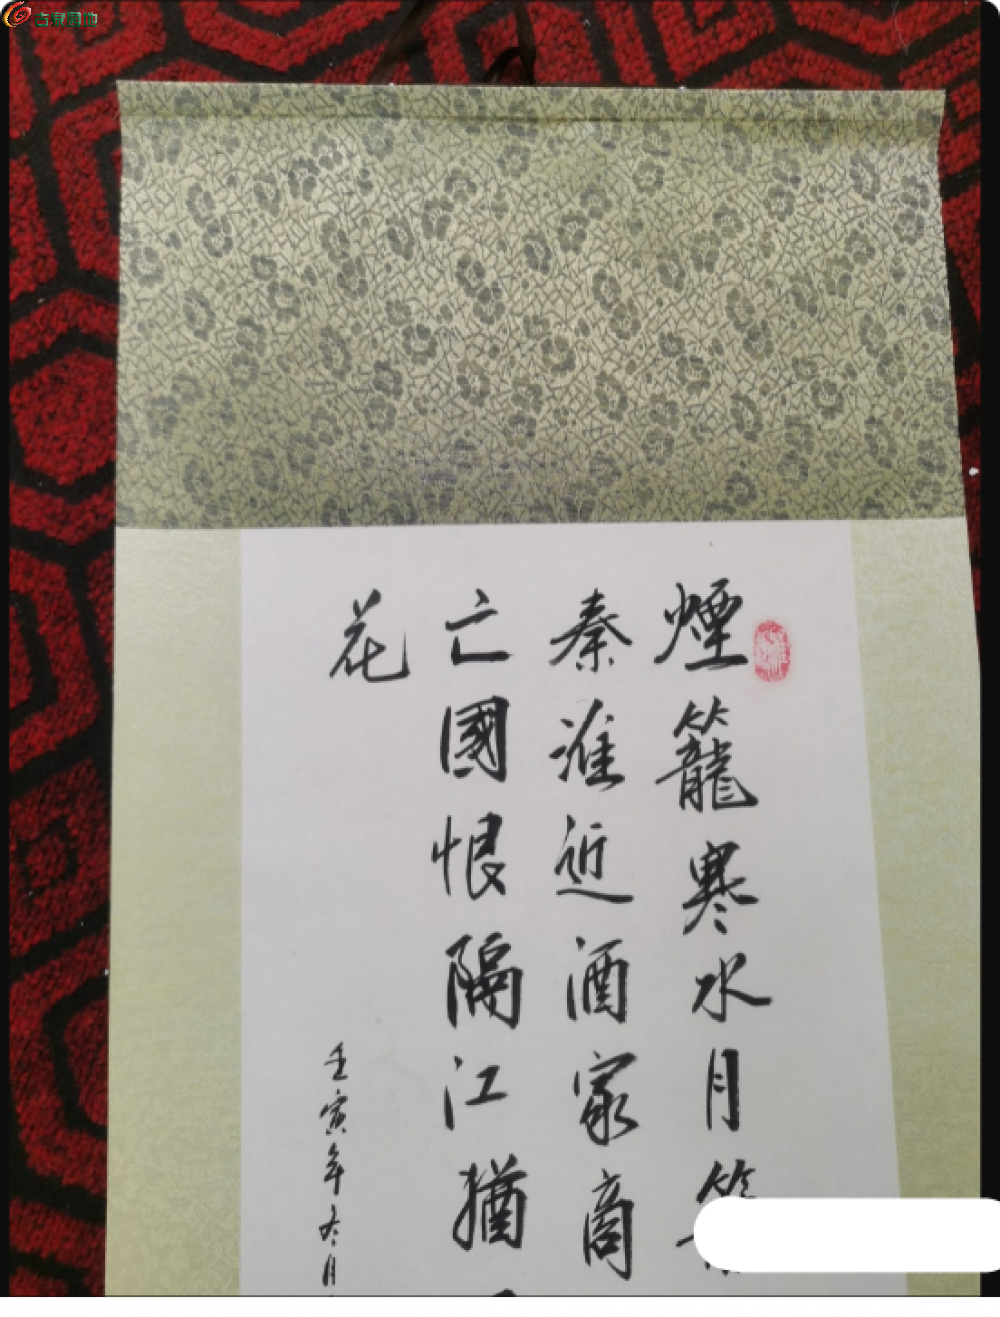 古泉园地
煙籠寒水月
秦淮近酒家商
亡國恨隔江猶
花
壬寅年冬月